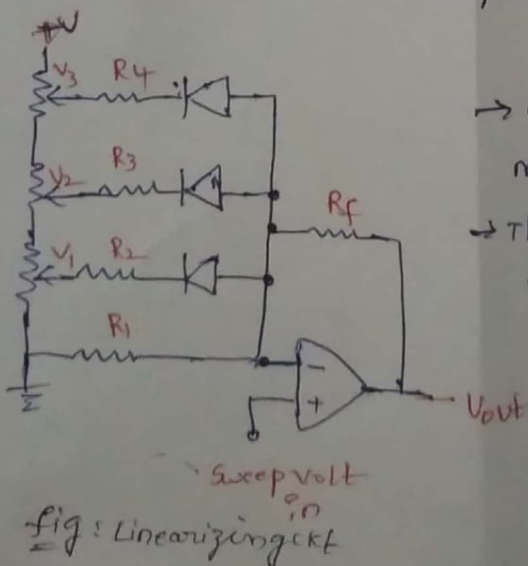 +V
V3 R4
V2 R3
Rf
V1 R2
R1
-
+
Vout
Sweep volt
in
fig: Linearizing ckt
→
n
→ Th